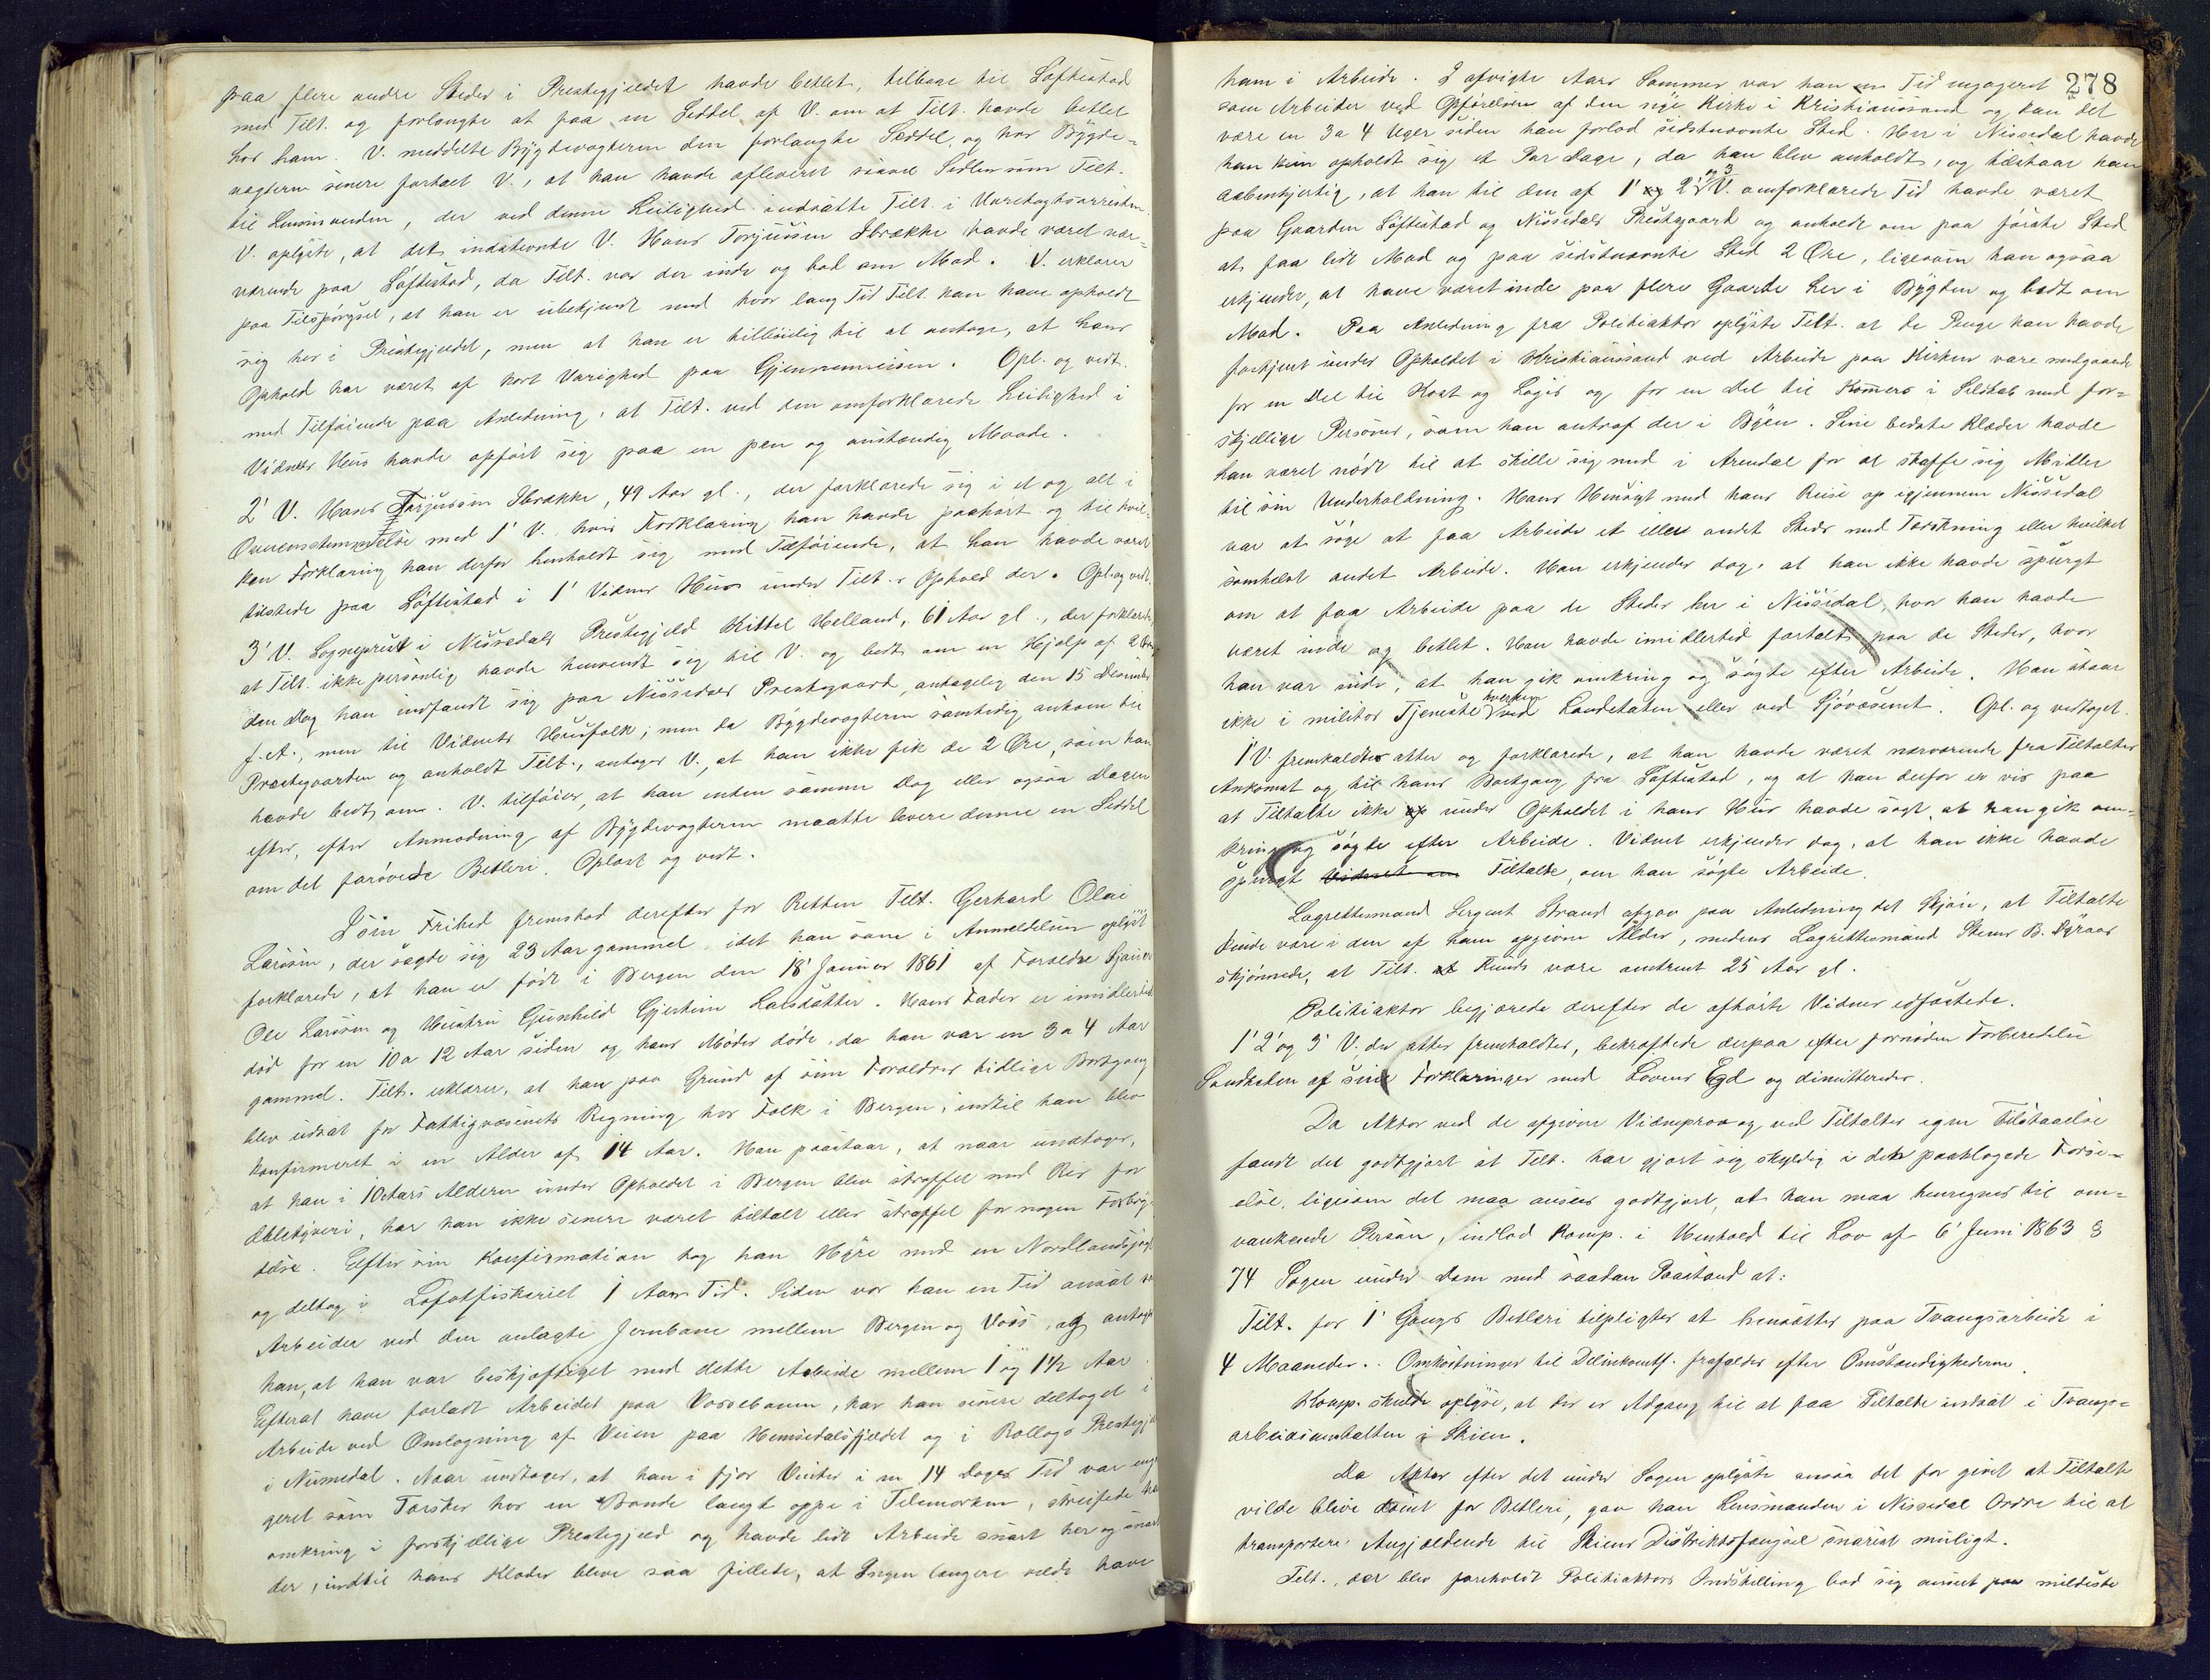 paa flere andre Steder i Prestegjeldet havde betlet, tilbage til Løftestad
med Tilt. og forlangte at faa en Seddel af V. om at Tilt. havde betlet
hos ham. V. meddelte Bygdevogteren den forlangte Seddel, og har Bygde-
vogteren senere fortalt V., at han havde afleveret saavel Sedlen som Tilt.
til Lensmanden, der ved denne Leilighed indsatte Tilt. i Varetægtsarresten.
V. oplyste, at det indstevnte V. Hans Torjussen Ibrække havde været nær-
værende paa Løftestad, da Tilt. var der inde og bad om Mad. V. erklærer
paa Tilspørgsel, at han er ubekjendt med hvor lang Tid Tilt. kan have opholdt
sig her i Prestegjeldet, men at han er tilbøielig til at antage, at hans
Ophold har været af kort Varighed paa Gjennemreisen. Opl. og vedt.
med Tilføiende paa Anledning, at Tilt. ved den omforklarede Leilighed i
Vidnets Hus havde opført sig paa en pen og anstændig Maade.
2' V. Hans Torjussen Ibrække, 49 Aar gl., der forklarede sig i et og alt i
Overensstemmelse med 1' V. hvis Forklaring han havde paahørt og til hvil-
ken Forklaring han derfor henholdt sig med Tilføiende, at han havde været
tilstede paa Løftestad i 1' Vidnes Hus under Tilt.s Ophold der. Opl. og vedt.
3' V. Sogneprest i Nissedals Prestegjeld Kittel Helland, 61 Aar gl., der forklarede,
at Tilt. ikke personlig havde henvendt sig til V. og bedt om en Hjælp af 2 Øre
den Dag han indfandt sig paa Nissedals Prestegaard, antagelig den 15 Desember
f. A., men til Vidnets Husfolk; men da Bygdevogteren samtidig ankom til
Prestegaarden og anholdt Tilt., antager V., at han ikke fik de 2 Øre som han
havde bedt om. V. tilføier, at han enten samme Dag eller ogsaa Dagen
efter, efter Anmodning af Bygdevogteren maatte levere denne en Seddel
om det forøvede Betleri. Oplæst og vedt.
Løs i Frihed fremstod derefter for Retten Tilt. Gerhard Olai
Larssen, der sagde sig 23 Aar gammel, idet han som i Anmeldelsen oplyst
forklarede, at han er født i Bergen den 18' Januar 1861 af Forældre
Ole Larssen og Hustru Gunhild Gjertine Larsdatter. Hans Fader er imidlertid
død for en 10 a 12 Aar siden og hans Moder døde, da han var en 3 a 4 Aar
gammel. Tilt. erklærer, at han paa Grund af sine Forældres tidlige Bortgang
blev udsat for Fattigvæsenets Regning hos Folk i Bergen, indtil han blev
konfirmeret i en Alder af 14 Aar. Han paastaar, at naar undtages,
at han i 10 Aars Alderen under Opholdet i Bergen blev straffet med Ris for
Æbletyveri, har han ikke senere været tiltalt eller straffet for nogen Forbry-
delse. Efter sin Konfirmation tog han Hyre med en Nordlandsjægt
og deltog i Lofotfiskeriet 1 Aars Tid. Siden var han en Tid ansat som
Arbeider ved den anlagte Jernbane mellem Bergen og Voss, og antager
han, at han var beskjæftiget med dette Arbeide mellem 1 og 1 1/2 Aar.
Efterat have forladt Arbeidet paa Vossebanen, har han senere deltaget i
Arbeide ved Omlægning af Veien paa Hemsedalsfjeldet og i Rollags Prestegjeld
i Numedal. Naar undtages, at han i fjor Vinter i en 14 Dages Tid var enga-
geret som Tærsker hos en Bonde langt oppe i Telemarken, streifede han
omkring i forskjellige Prestegjeld og havde lidt Arbeide snart her og snart
der, indtil hans Klæder bleve saa fillede, at Ingen længere vilde have
278
ham i Arbeide. I afvigte Aars Sommer var han en Tid engageret
som Arbeider ved Opførelsen af den nye Kirke i Kristianssand og kan det
være en 3 a 4 Uger siden han forlod sidstnævnte Sted. Her i Nissedal havde
han kun opholdt sig et Par Dage, da han blev anholdt, og tilstaar han
aabenhjertig, at han til den af 1' 2' og 3' V. omforklarede Tid havde været
paa Gaarden Løftestad og Nissedals Prestegaard og anholdt om paa første Sted
at faa lidt Mad og paa sidstnævnte Sted 2 Øre, ligesom han ogsaa
erkjender, at have været inde paa flere Gaarde her i Bygden og bedt om
Mad. Paa Anledning fra Politiaktor oplyste Tilt. at de Penge han havde
fortjent under Opholdet i Kristianssand ved Arbeide paa Kirken vare medgaaede
for en Del til Kost og Logis og for en Del til Kommers i Selskab med for-
skjellige Personer, som han antraf der i Byen. Sine bedste Klæder havde
han været nødt til at skille sig med i Arendal for at skaffe sig Midler
til sin Underholdning. Hans Hensigt med hans Reise op igjennem Nissedal
var at søge at faa Arbeide et eller andet Steds med Tærskning eller hvilket
somhelst andet Arbeide. Han erkjender dog, at han ikke havde spurgt
om at faa Arbeide paa de Steder her i Nissedal, hvor han havde
været inde og betlet. Han havde imidlertid fortalt paa de Steder, hvor
han var inde, at han gik omkring og søgte efter Arbeide. Han staar
ikke i militær Tjeneste hverken ved Landetaten eller ved Sjøvæsenet. Opl. og vedtaget.
1' V. fremkaldtes atter og forklarede, at han havde været nærværende fra Tiltaltes
Ankomst og til hans Bortgang fra Løftestad, og at han derfor er vis paa
at Tiltalte ikke under Opholdet i hans Hus havde sagt, at han gik om-
kring og søgte efter Arbeide. Vidnet erkjender dog, at han ikke havde
spurgt Vidnet om Tiltalte, om han søgte Arbeide.
Lagrettemand Sergent Strand afgav paa Anledning det Skjøn, at Tiltalte
kunde være i den af ham opgivne Alder, medens Lagrettemand Steener B. Dyraas
skjønnede, at Tilt. kunde være omtrent 25 Aar gl.
Politiaktor begjærede derefter de afhørte Vidner edfæstede.
1' 2' og 3' V. der atter fremkaldtes, bekræftede derpaa efter fornøden Forberedelse
Sandheden af sine Forklaringer med Lovens Ed og dimitteredes.
Da Aktor ved de afgivne Vidneprov og ved Tiltaltes egen Tilstaaelse
fandt det godtgjort at Tilt. har gjort sig skyldig i den paaklagede Forse-
else, ligesom det maa ansees godtgjort, at han maa henregnes til om-
vankende Person, indlod Komp. i Henhold til Lov af 6' Juni 1863 §
74 Sagen under Dom med saadan Paastand at:
Tilt. for 1' Gangs Betleri tilpligtes at hensættes paa Tvangsarbeide i
4 Maaneder. Omkostninger til Delinkventf. frafaldes efter Omstændighederne.
Komp. skulde oplyse, at der er Adgang til at faa Tiltalte indsat i Tvangs-
arbeidsanstalten i Skien.
Da Aktor efter det under Sagen oplyste ansaa det for givet at Tiltalte
vilde blive dømt for Betleri, gav han Lensmanden i Nissedal Ordre til at
transportere Angjældende til Skiens Distriktsfængsel snarest muligt.
Tilt., der blev foreholdt Politiaktors Indstilling bad sig anseet paa mildeste